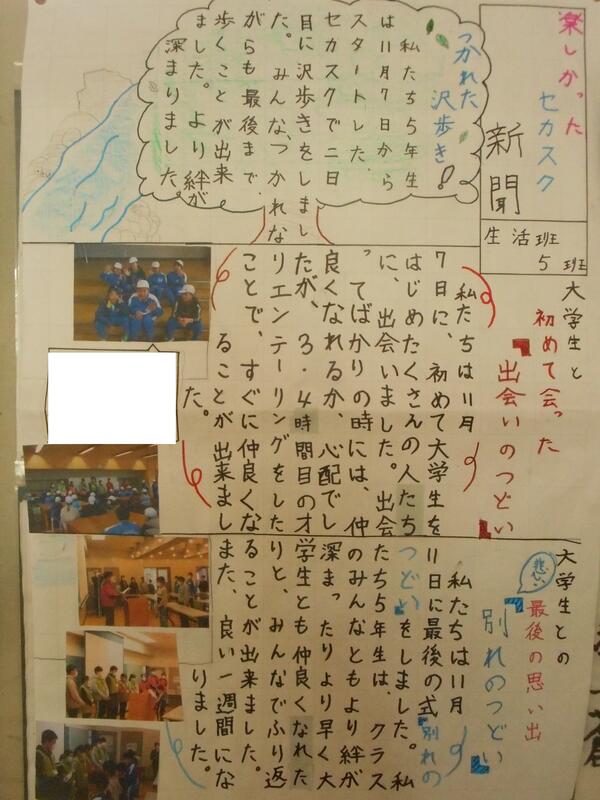 楽しかった
セカスク
新聞
生活班
5班
つかれた
沢歩き!
私たち5年生
は11月7日から
スタートした、
セカスクで二日
目に沢歩きをしまし
た。みんな、つかれな
がらも最後まで
歩くことが出来
ました。より絆が
深まりました。
大学生と
初めて会った
『出会いのつどい』
私たちは11月
7日に、初めて大学生を
はじめたくさんの人たち
に、出会いました。出会
ってばかりの時には、仲
良くなれるか、心配でし
たが、3・4時間目のオ
リエンテーリングをした
ことで、すぐに仲良くな
ることが出来まし
た。
大学生との
悲しい
最後の思い出
『別れのつどい』
私たちは11月
11日に最後の式『別れの
つどい』をしました。私
たち5年生は、クラス
のみんなともより絆が
深まったりより早く大
学生とも仲良くなれた
りと、みんなでふり返
ることが出来ました。
また、良い一週間にな
りました。